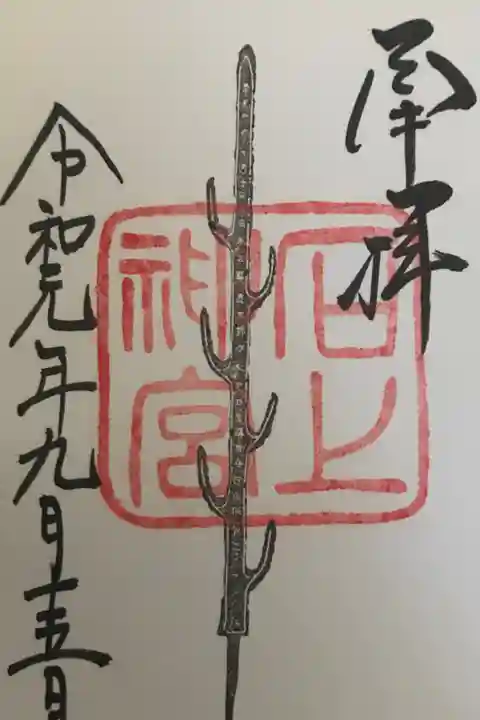 奉拝
石上
神宮
令和元年九月十五日